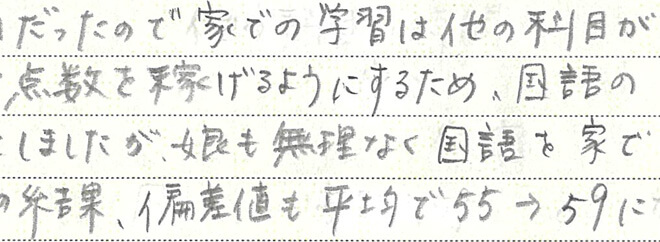 だったので家での学習は他の科目が
点数を稼げるようにするため、国語の
しましたが、娘も無理なく国語を家で
の結果、偏差値も平均で55→59に